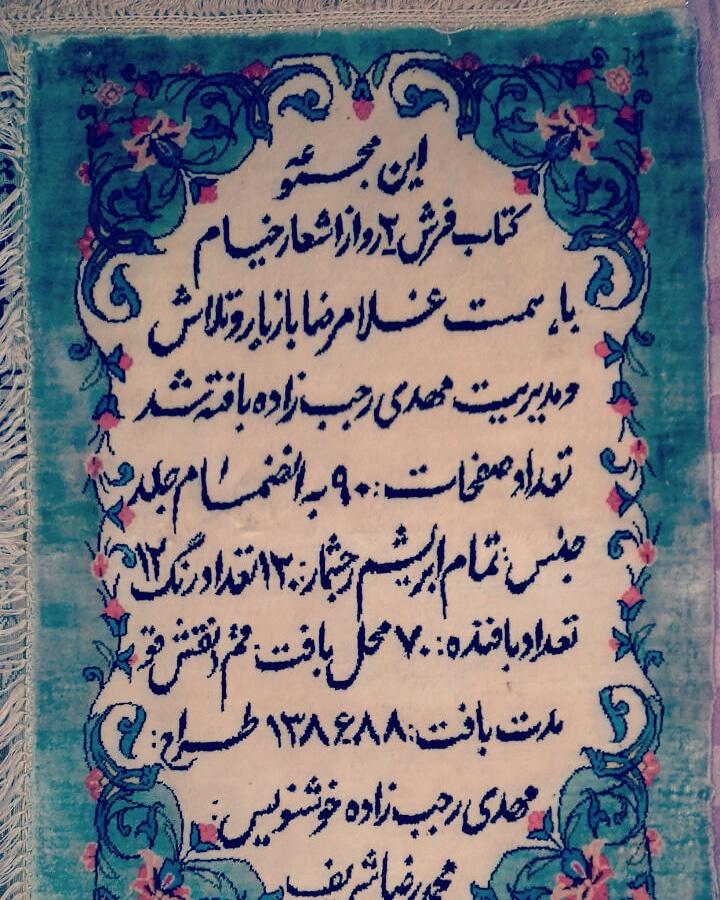 این مجموعه
کتاب فرش ۲ رو از اشعار خیام
با همت غلامرضا بازیار و تلاش
و مدیریت مهدی رجب زاده بافته شد
تعداد صفحات: ۹۰ به انضمام جلد
جنس: تمام ابریشم رجشمار: ۱۲۰ تعداد رنگ ۱۲
تعداد بافنده: ۷۰ محل بافت: قم نقش
مدت بافت: ۱۳۸۶٫۸۸ طراح:
مهدی رجب زاده خوشنویس:
محمدرضا شریف